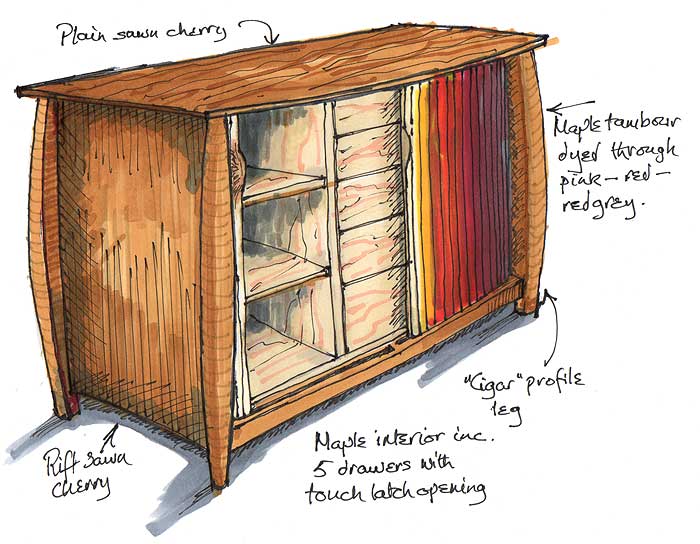 Plain sawn cherry
Maple tambour
dyed through
pink – red –
redgrey.
"Cigar" profile
leg
Maple interior inc.
5 drawers with
touch latch opening
Rift sawn
cherry